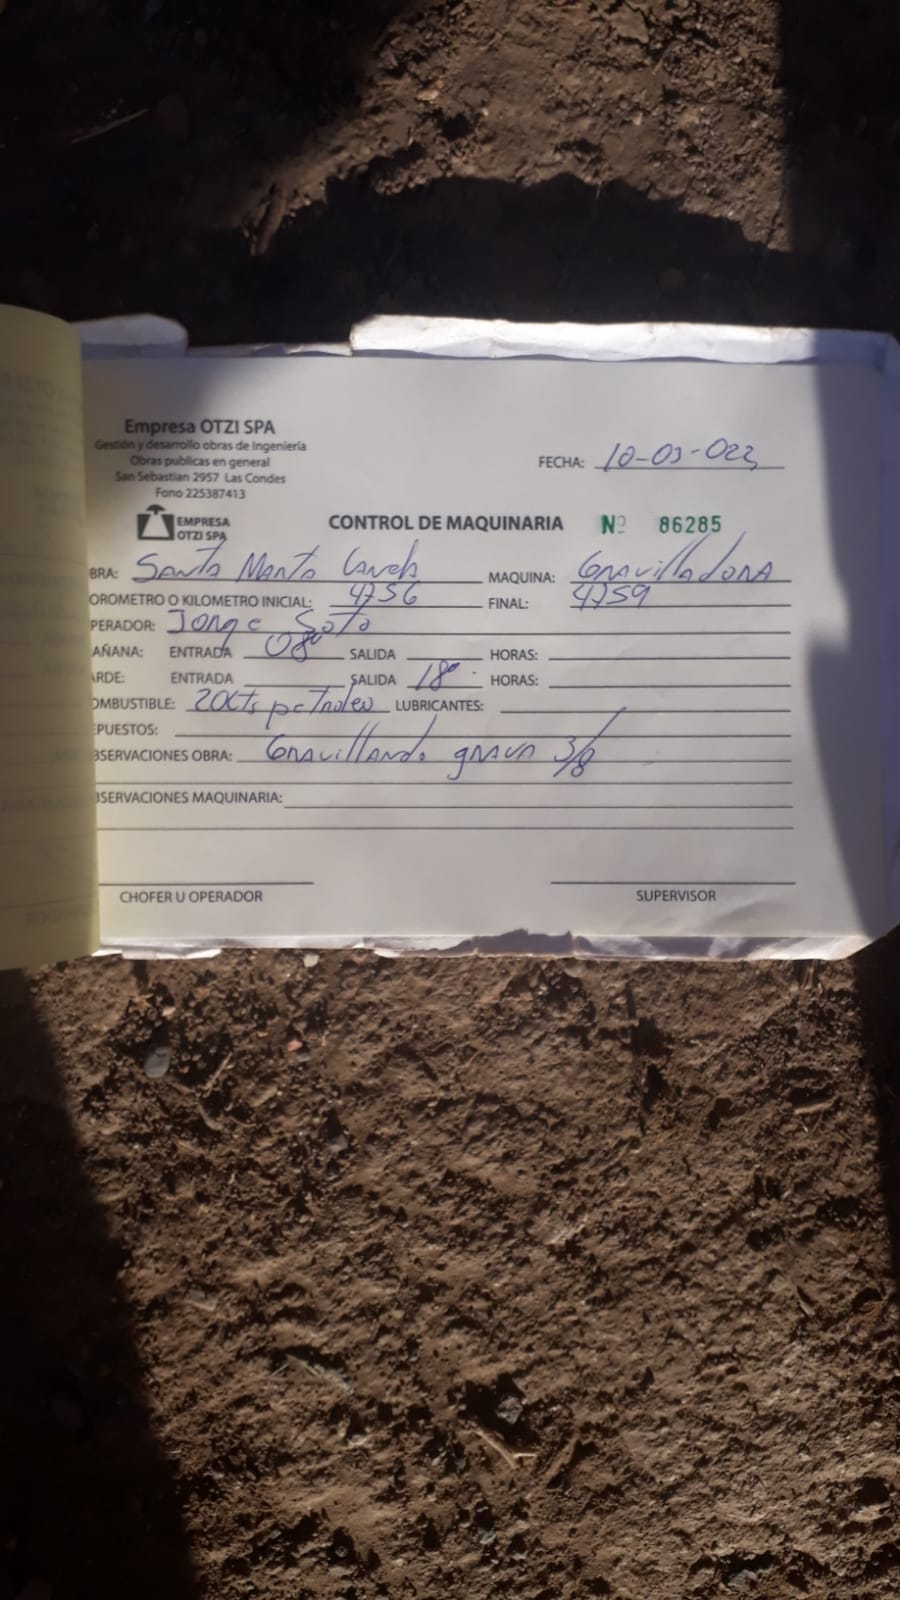 Empresa OTZI SPA
Gestión y desarrollo obras de Ingeniería
Obras publicas en general
San Sebastian 2957 Las Condes
Fono 225387413
FECHA: 10-03-022
EMPRESA
OTZI SPA
CONTROL DE MAQUINARIA Nº 86285
BRA: Santa Marta MAQUINA: Gravilladora
OROMETRO O KILOMETRO INICIAL: 4756 FINAL: 4759
PERADOR: Jorge Soto
AÑANA: ENTRADA 08º SALIDA HORAS:
ARDE: ENTRADA SALIDA 18º HORAS:
OMBUSTIBLE: 20Lts petroleo LUBRICANTES:
EPUESTOS:
BSERVACIONES OBRA: Gravillando grava 3/8
BSERVACIONES MAQUINARIA:
CHOFER U OPERADOR SUPERVISOR